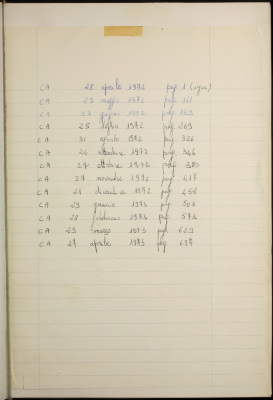 CA 28 aprile 1972 pag. 1 (segue)
CA 23 maggio 1972 pag. 161
CA 23 giugno 1972 pag.
CA 25 luglio 1972 pag. 269
CA 31 agosto 1972 pag. 326
CA settembre 1972 pag. 366
CA 27 ottobre 1972 pag. 380
CA 27 novembre 1972 pag. 418
CA 21 dicembre 1972 pag. 456
CA 29 gennaio 1973 pag. 503
CA 28 febbraio 1973 pag. 573
CA 29 marzo 1973 pag. 629
CA 27 aprile 1973 pag.